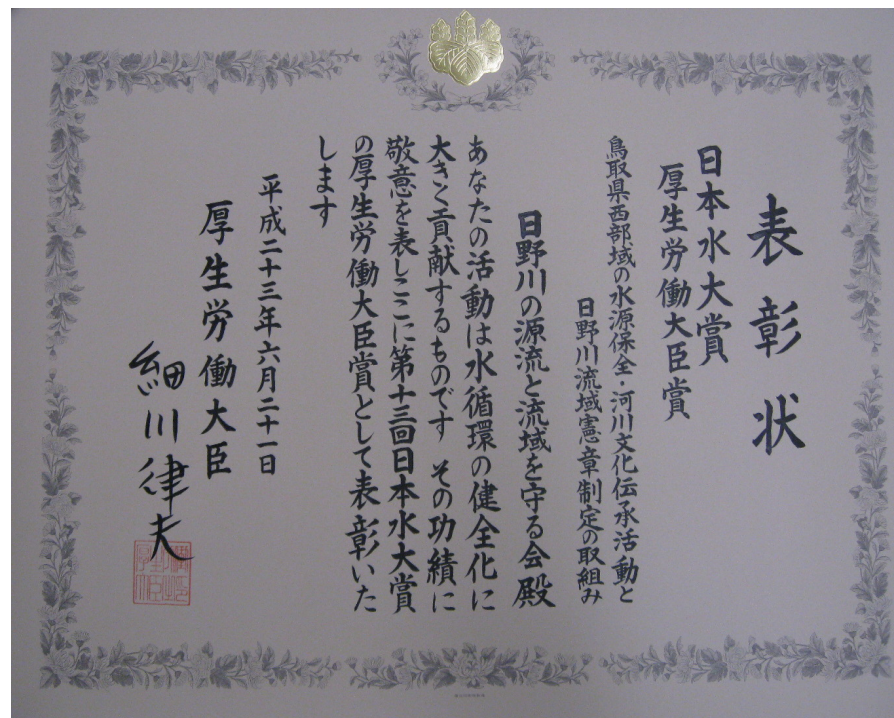 表彰状
日本水大賞
厚生労働大臣賞
鳥取県西部域の水源保全・河川文化伝承活動と
日野川流域憲章制定の取組み
日野川の源流と流域を守る会 殿
あなたの活動は水循環の健全化に
大きく貢献するものです その功績に
敬意を表しここに第十三回日本水大賞
の厚生労働大臣賞として表彰いた
します
平成二十三年六月二十一日
厚生労働大臣
細川律夫